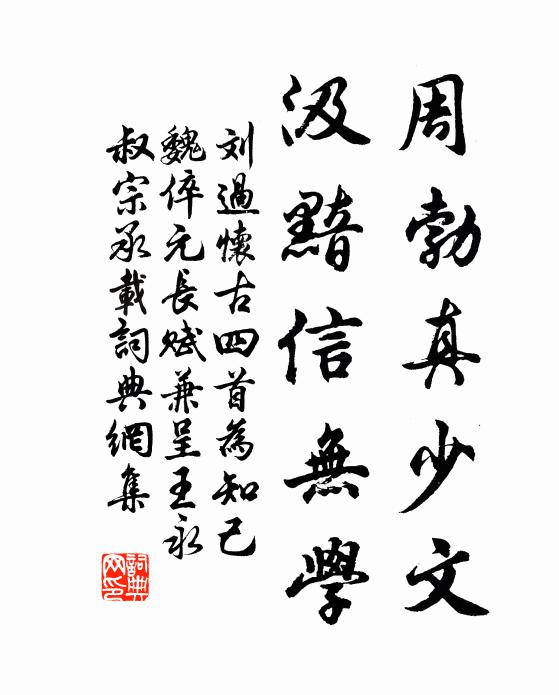 周勃真少文
汲黯信無學
刘過懷古四首為知己
魏倅元長赋兼呈王永
叔宗丞載詞典網集
詞典网印